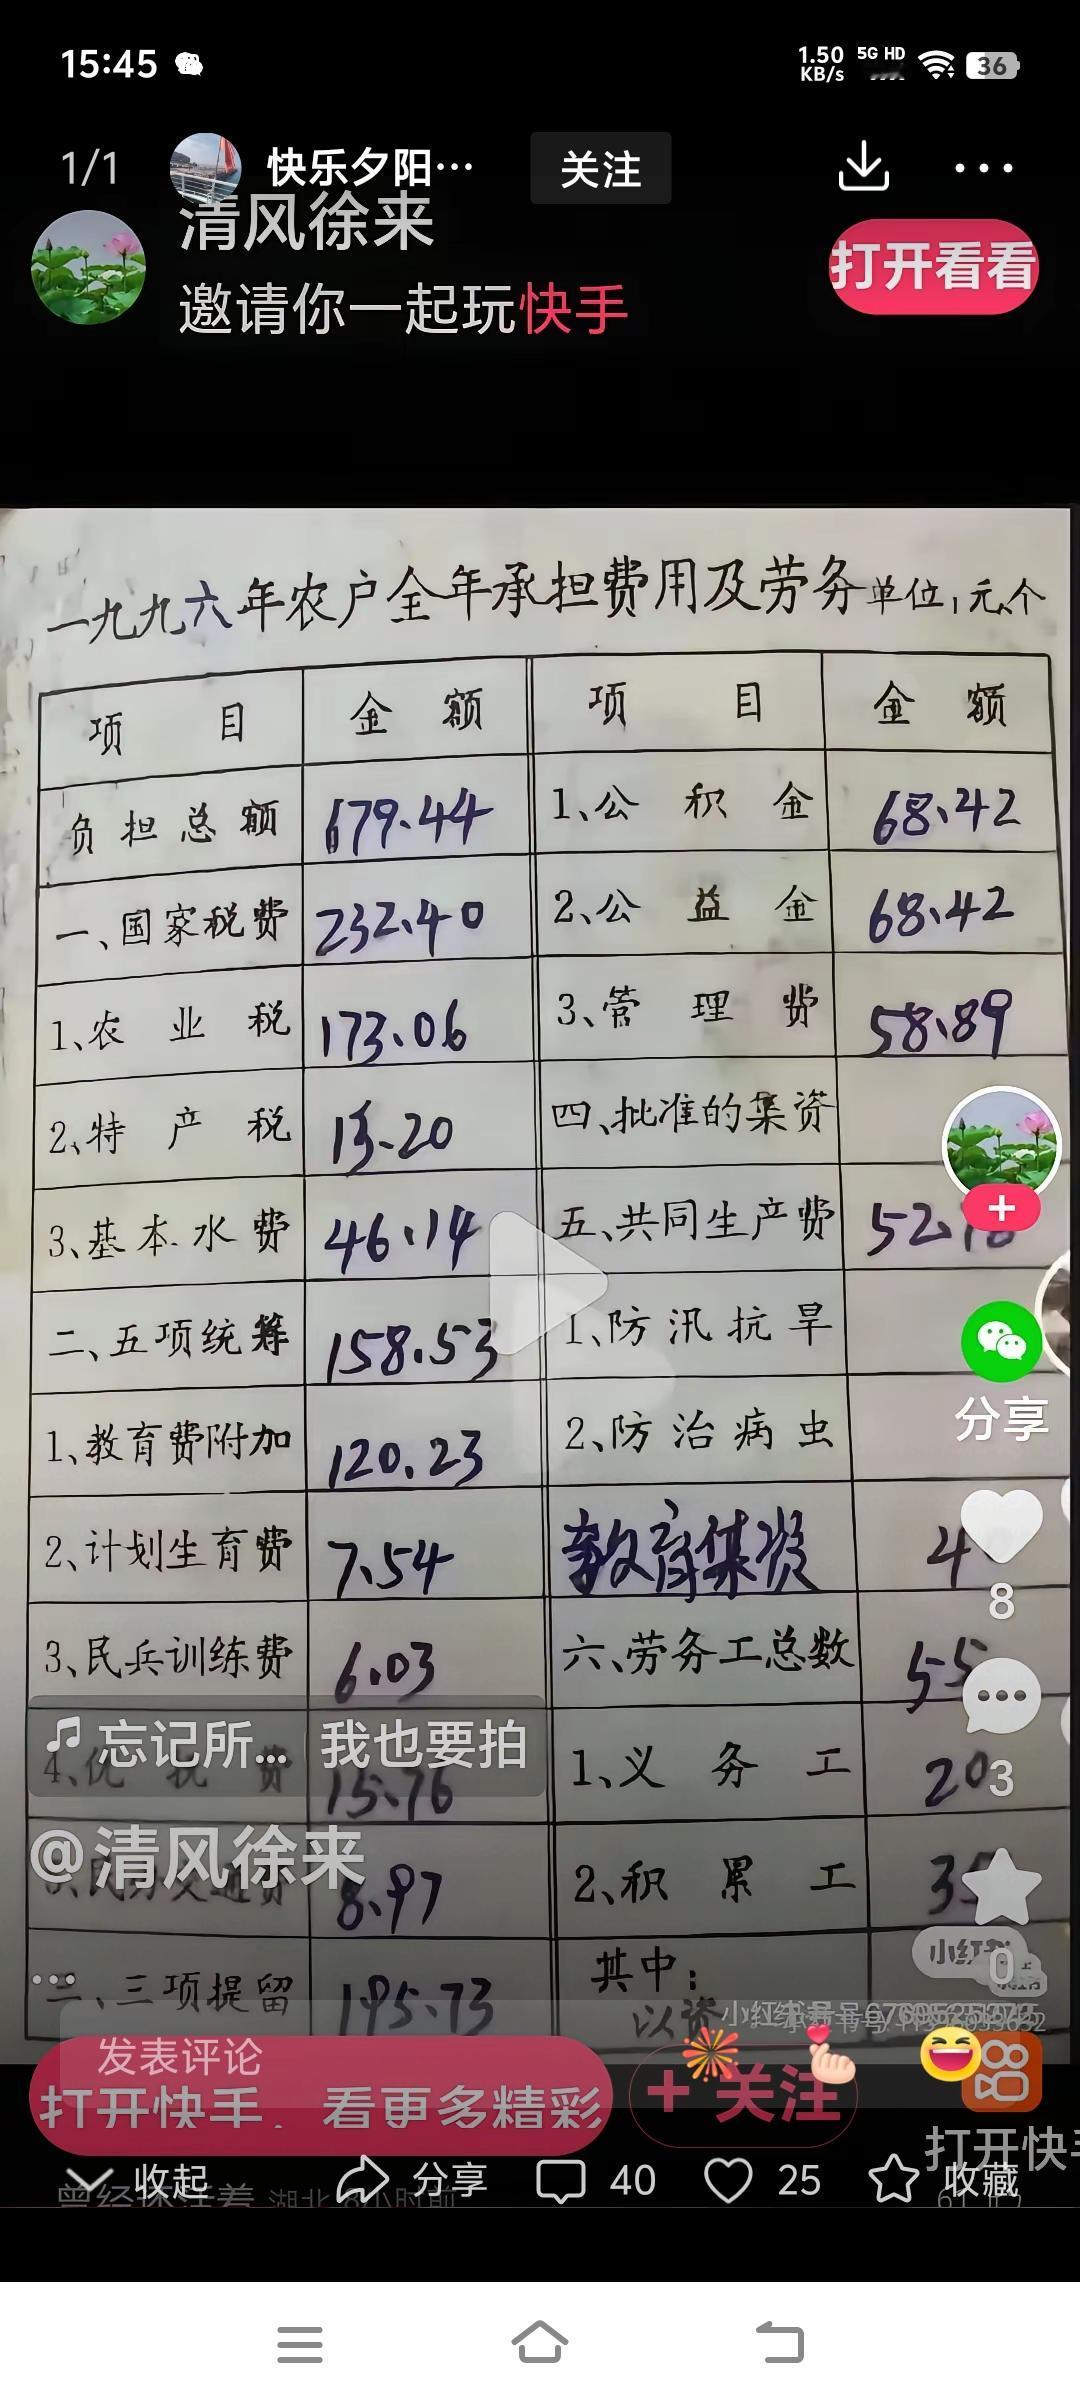 15:45
1.50 KB/s 5G HD 36
1/1 快乐夕阳… 关注
清风徐来
邀请你一起玩快手
打开看看
一九九六年农户全年承担费用及劳务 单位:元、个
项目 金额 项目 金额
负担总额 679.44 1、公积金 68.42
一、国家税费 232.40 2、公益金 68.42
1、农业税 173.06 3、管理费 58.89
2、特产税 13.20 四、批准的集资
3、基本水费 46.14 五、共同生产费
二、五项统筹 158.53 1、防汛抗旱
1、教育费附加 120.23 2、防治病虫
2、计划生育费 7.54 教育集资
3、民兵训练费 6.03 六、劳务工总数 55
15.76 1、义务工 20
8.97 2、积累工
三、三项提留 195.73 其中:
以资
分享
8
3
0
忘记所... 我也要拍
@清风徐来
...
发表评论
打开快手,看更多精彩
+关注
打开快手
收起 分享 40 25 收藏